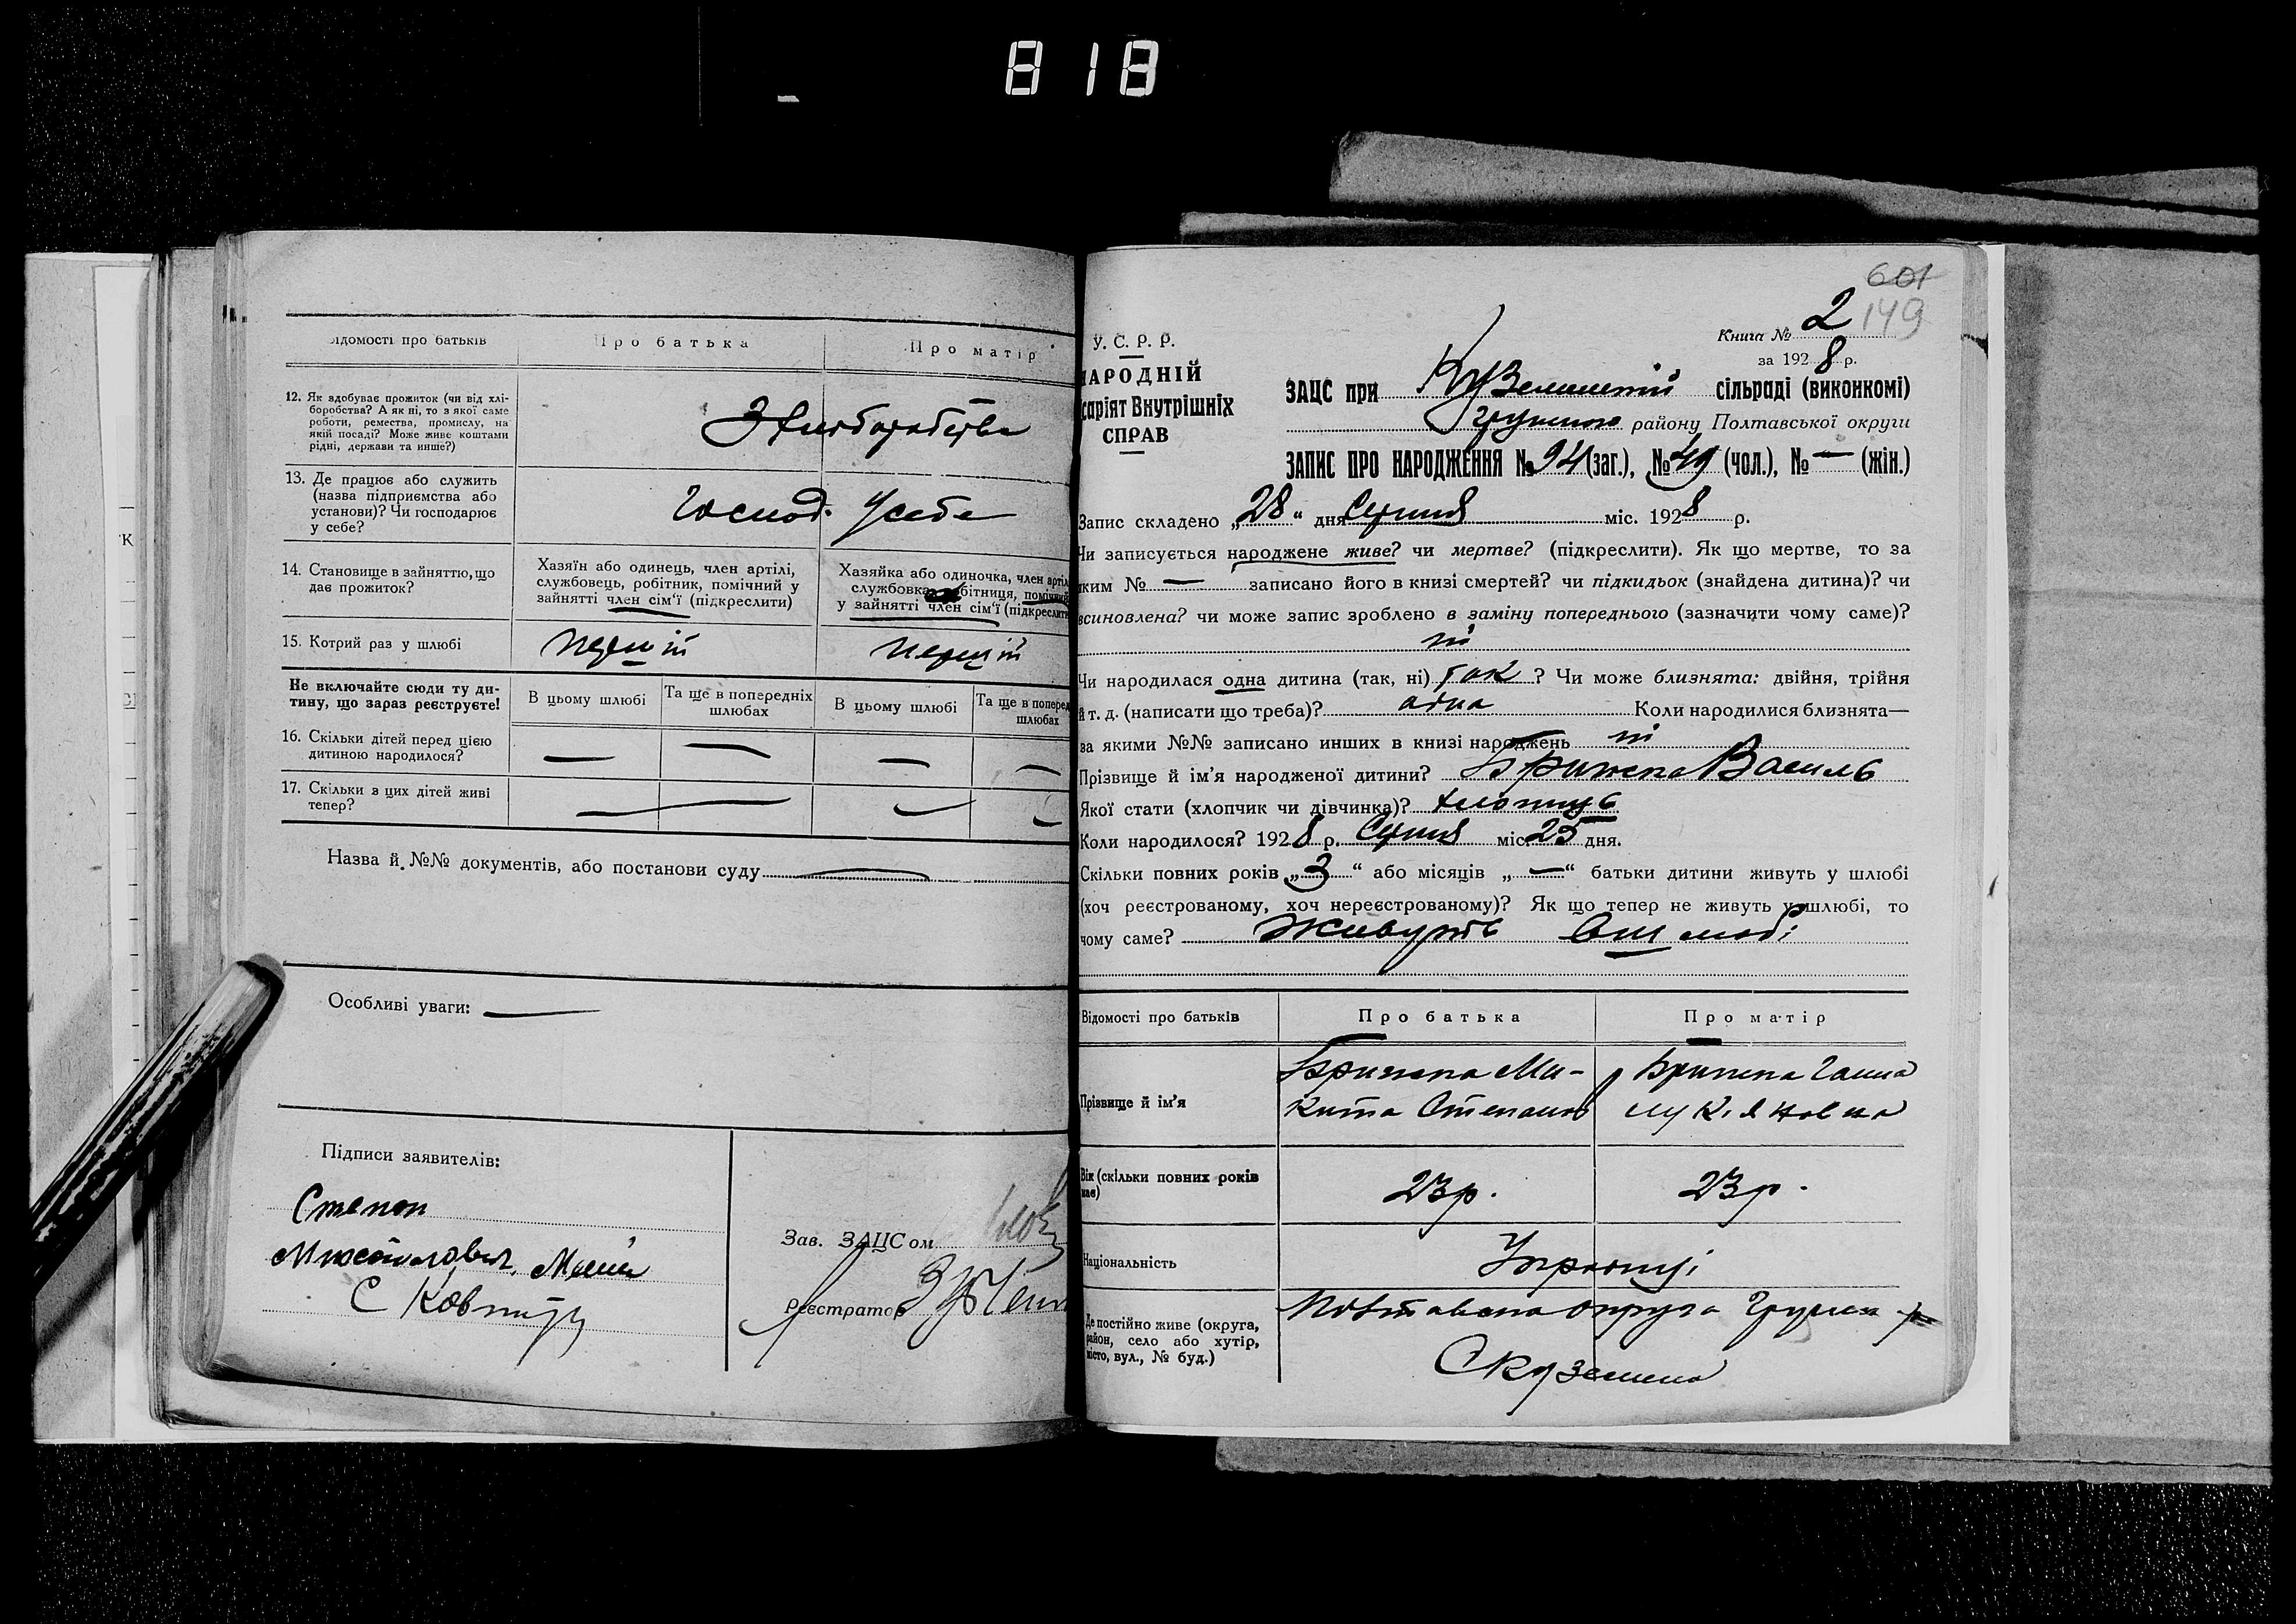 818
Відомості про батьків
Про батька
Про матір
12. Як здобуває прожиток (чи від хлі-
боробства? А як ні, то з якої саме
роботи, ремества, промислу, на
якій посаді? Може живе коштами
рідні, держави та инше?)
З хліборобства
13. Де працює або служить
(назва підприємства або
установи)? Чи господарює
у себе?
Господ. у себе
14. Становище в зайняттю, що
дає прожиток?
Хазяїн або одинець, член артілі,
службовець, робітник, помічний у
зайнятті член сім'ї (підкреслити)
Хазяйка або одиночка, член артілі
службовка, робітниця, помічний
у зайнятті член сім'ї (підкреслити
15. Котрий раз у шлюбі
перший
перший
Не включайте сюди ту ди-
тину, що зараз реєструєте!
В цьому шлюбі
Та ще в попередніх
шлюбах
В цьому шлюбі
Та ще в поперед
шлюбах
16. Скільки дітей перед цією
дитиною народилося?
— — — —
17. Скільки з цих дітей живі
тепер?
Назва й №№ документів, або постанови суду —
Особливі уваги: —
Підписи заявителів:
Степан
С
Зав. ЗАЦСом
Реєстратор
601
149
Книга № 2
за 1928 р.
У. С. Р. Р.
НАРОДНІЙ
саріят Внутрішніх
СПРАВ
ЗАЦС при Куземинській сільраді (виконкомі)
Грунськ району Полтавської округи
ЗАПИС ПРО НАРОДЖЕННЯ № 94 (заг.), № 49 (чол.), № — (жін.)
Запис складено „28" дня Серпня міс. 1928 р.
Чи записується народжене живе? чи мертве? (підкреслити). Як що мертве, то за
яким № — записано його в книзі смертей? чи підкидьок (знайдена дитина)? чи
всиновлена? чи може запис зроблено в заміну попереднього (зазначити чому саме)?
ні
Чи народилася одна дитина (так, ні) так ? Чи може близнята: двійня, трійня
й т. д. (написати що треба)? одна Коли народилися близнята—
за якими №№ записано инших в книзі народжень ні
Прізвище й ім'я народженої дитини? Брижепа Василь
Якої стати (хлопчик чи дівчинка)? хлопець
Коли народилося? 1928 р. Серпня міс. 25 дня.
Скільки повних років „3" або місяців „—" батьки дитини живуть у шлюбі
(хоч реєстрованому, хоч нереєстрованому)? Як що тепер не живуть у шлюбі, то
чому саме? Живуть в шлюбі
Відомості про батьків
Про батька
Про матір
Прізвище й ім'я
Ми-
кита Степанов
Ганна
Лук'яновна
Вік (скільки повних років
має)
23 р.
23 р.
Національність
Українці
Де постійно живе (округа,
район, село або хутір,
місто, вул., № буд.)
Полтавська округа Грунськ р
С Куземина